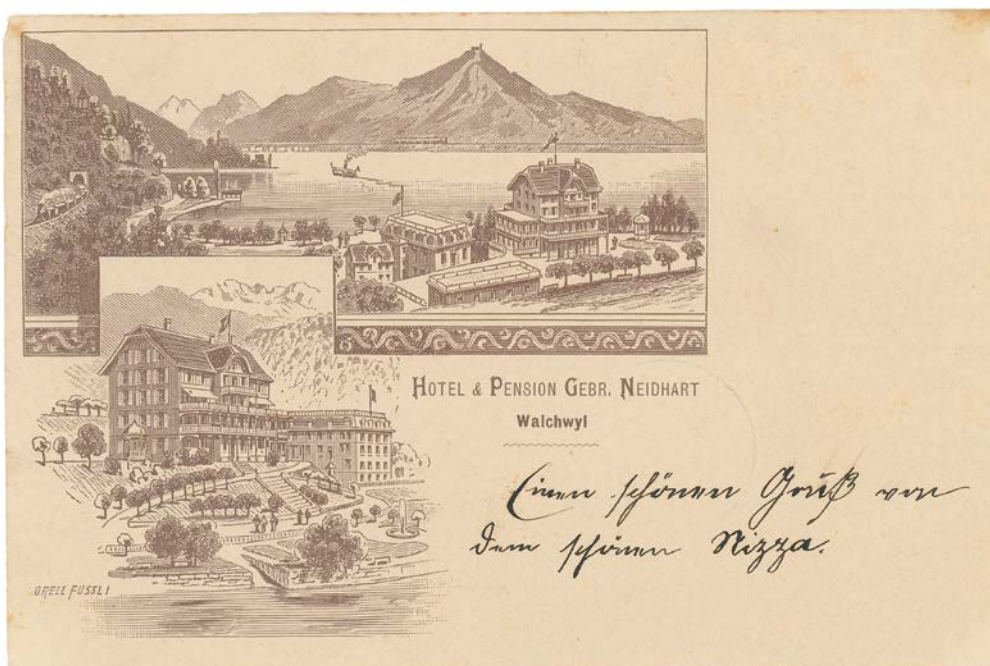 HOTEL & PENSION GEBR. NEIDHART
Walchwyl
Einen schönen Gruß von
dem schönen Nizza.
ORELL FÜSSLI